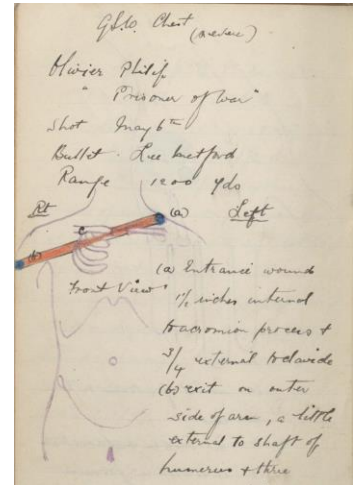 G.S.W. Chest (severe)
Olivier Philip
"Prisoner of War"
Shot May 6th
Bullet. Lee Metford
Range 1200 yds
Rt (a) Left
c
(b)
Front View
(a) Entrance wound
1½ inches internal
to acromion process &
3/4 external to clavicle
(b) exit on outer
side of arm, a little
external to shaft of
humerus & three